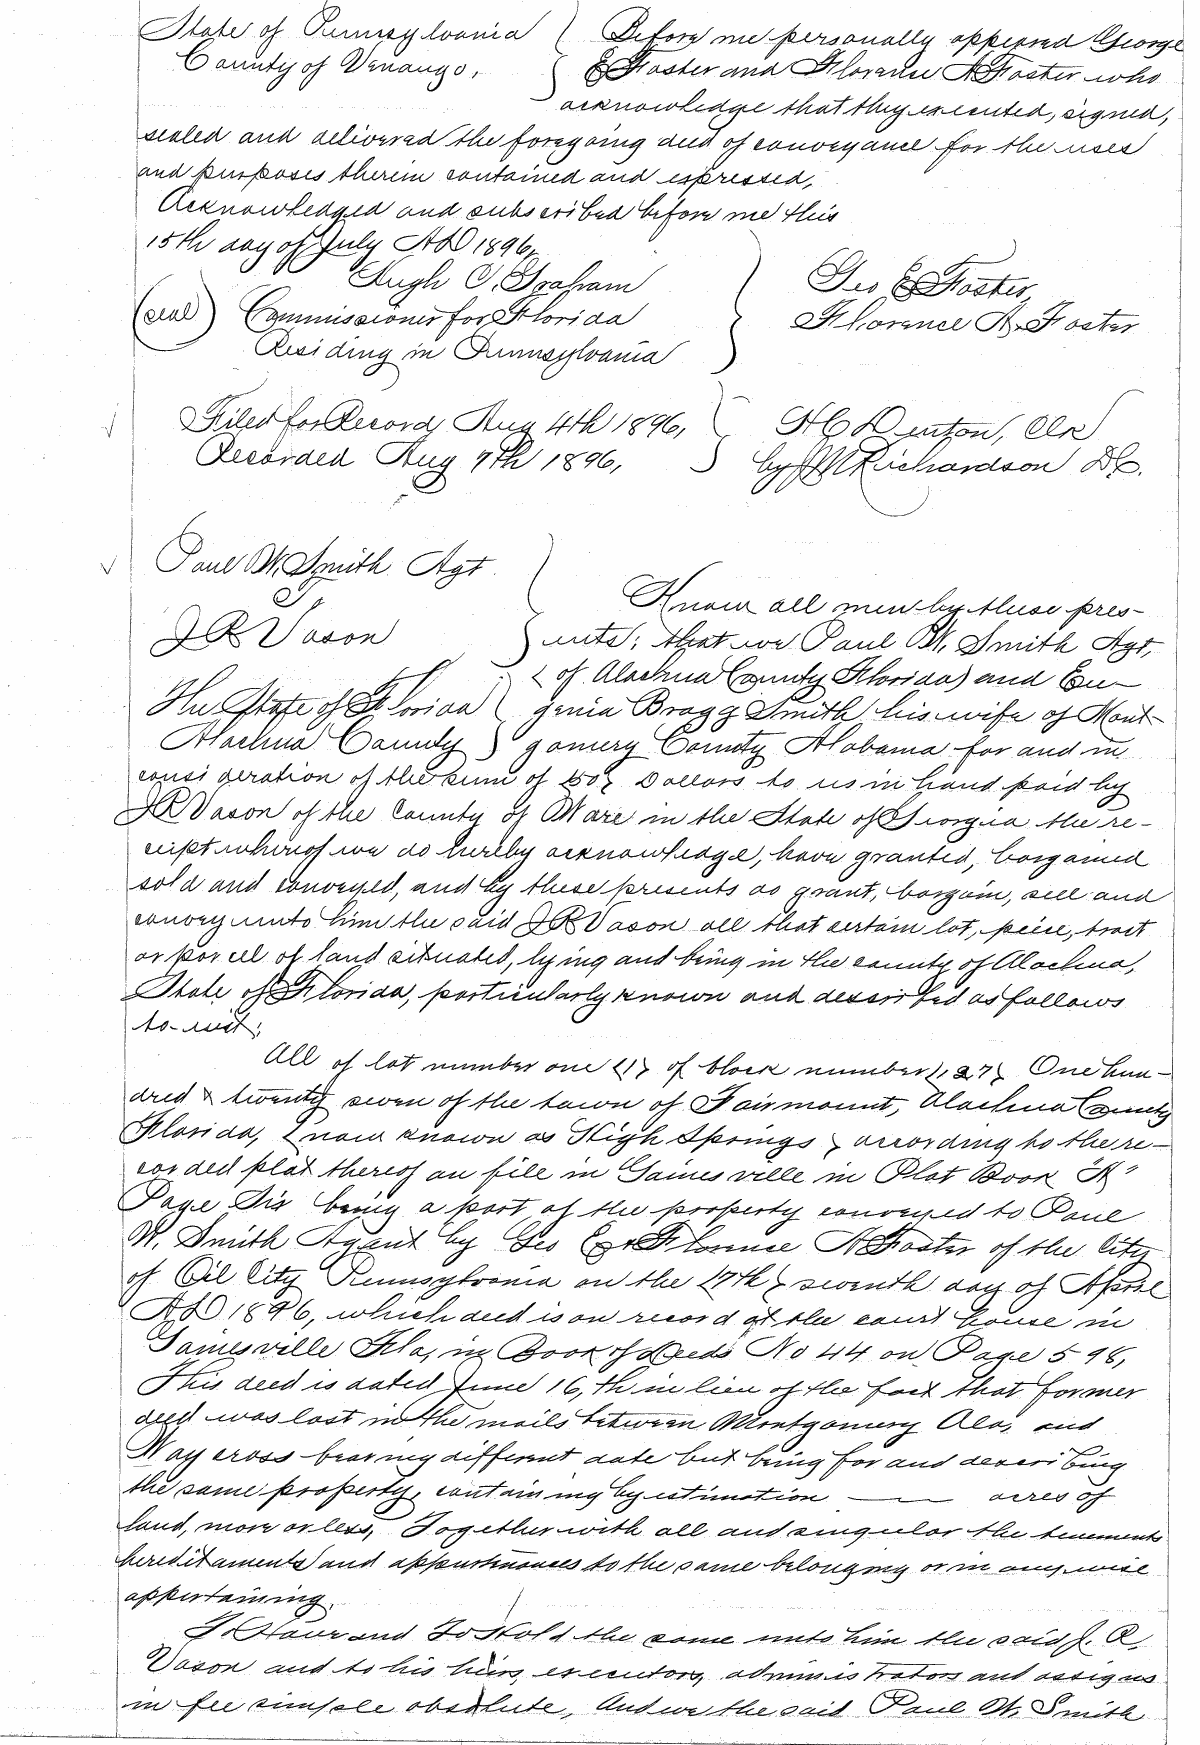 State of Pennsylvania ) Before me personally appeared George
County of Venango, ) E Foster and Florence A Foster who
acknowledge that they executed, signed,
sealed and delivered the foregoing deed of conveyance for the uses
and purposes therein contained and expressed,
Acknowledged and subscribed before me this
15th day of July AD 1896,
Hugh C. Graham ) Geo E Foster,
(seal) Commissioner for Florida ) Florence A. Foster
Residing in Pennsylvania )
Filed for Record, Aug 4th 1896, ) H C Denton, Clk
Recorded Aug 7th 1896, ) by Richardson D C.
Paul W. Smith Agt
To ) Know all men by these pres-
J R Vason ) ents; that we Paul W. Smith Agt,
( of Alachua County Florida) and Eu-
The State of Florida ) genia Bragg Smith, his wife of Mont-
Alachua County ) gomery County Alabama for and in
consideration of the sum of Dollars to us in hand paid by
J R Vason of the County of Ware in the State of Georgia the re-
ceipt whereof we do hereby acknowledge, have granted, bargained
sold and conveyed, and by these presents do grant, bargain, sell and
convey unto him the said J R Vason all that certain lot, piece, tract
or parcel of land situated, lying and being in the county of Alachua,
State of Florida, particularly known and described as follows
to-wit;
All of lot number one (1) of block number (127) One hun-
dred & twenty seven of the town of Fairmount, Alachua County
Florida, (now known as High Springs) according to the re-
corded plat thereof on file in Gainesville in Plat Book "A"
Page Six being a part of the property conveyed to Paul
W. Smith Agent by Geo E & Florence A Foster of the City
of Oil City Pennsylvania on the (7th) seventh day of April
AD 1896, which deed is on record at the court house in
Gainesville Fla, in Book of Deeds No 44 on Page 596,
This deed is dated June 16,th in lieu of the fact that former
deed was lost in the mails between Montgomery Ala, and
Way cross bearing different date but being for and describing
the same property, containing by estimation —— acres of
land, more or less, Together with all and singular the tenements
hereditaments and appurtenances to the same belonging or in anywise
appertaining.
To Have and To Hold the same unto him the said J. R.
Vason and to his heirs, executors, administrators and assigns
in fee simple absolute, And we the said Paul W. Smith